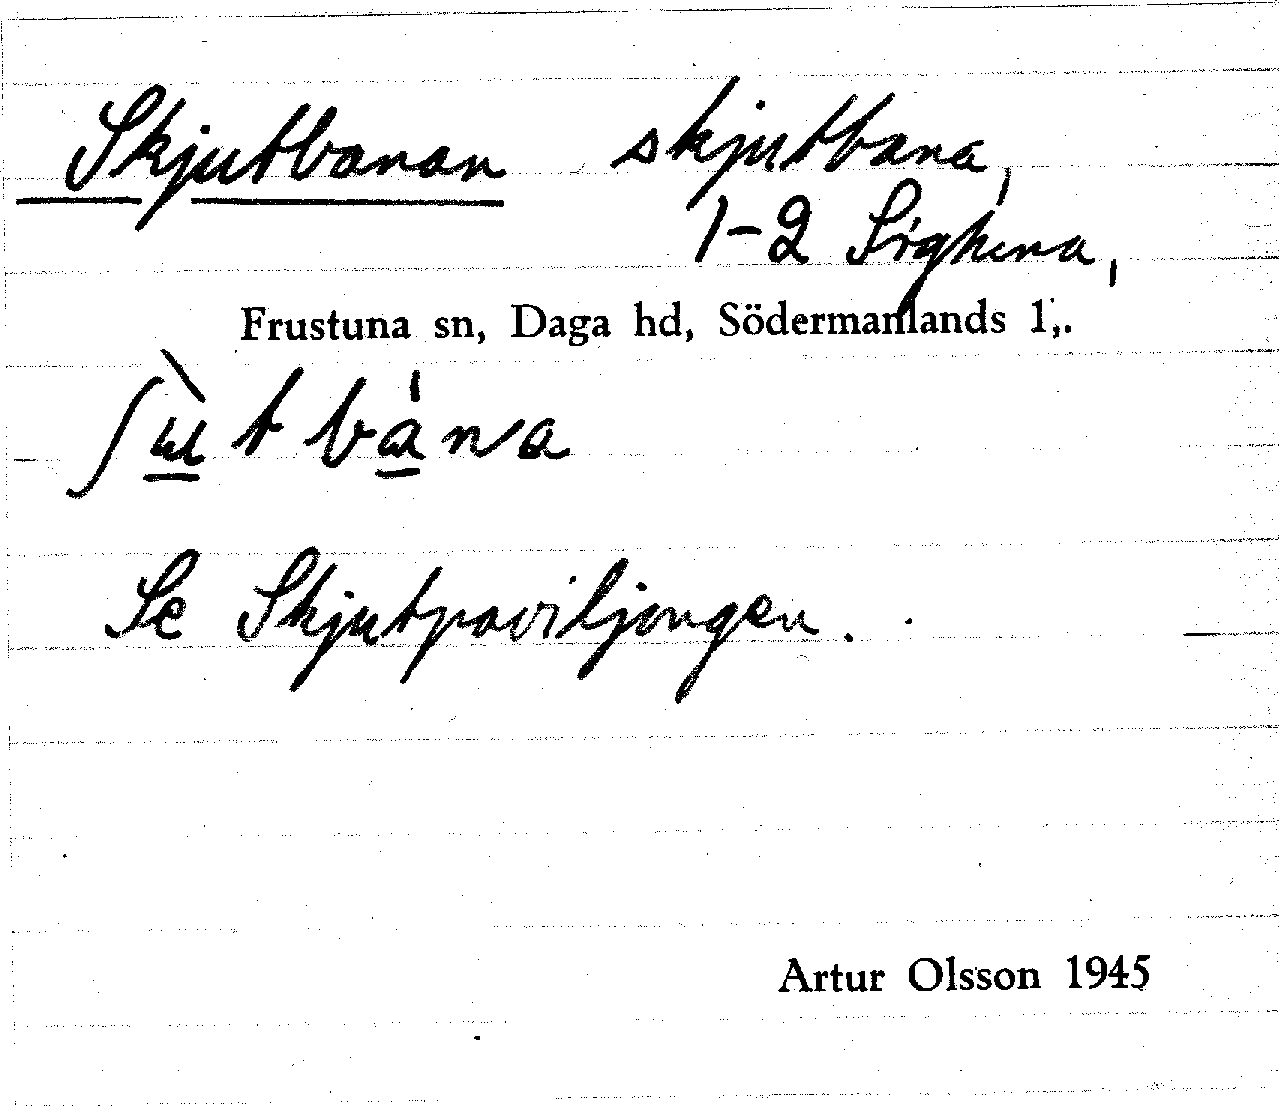 Skjutbanan skjutbana,
1-2 Sighena,
Frustuna sn, Daga hd, Södermanlands l,.
ʃùtbána
Se Skjutpaviljongen.
Artur Olsson 1945